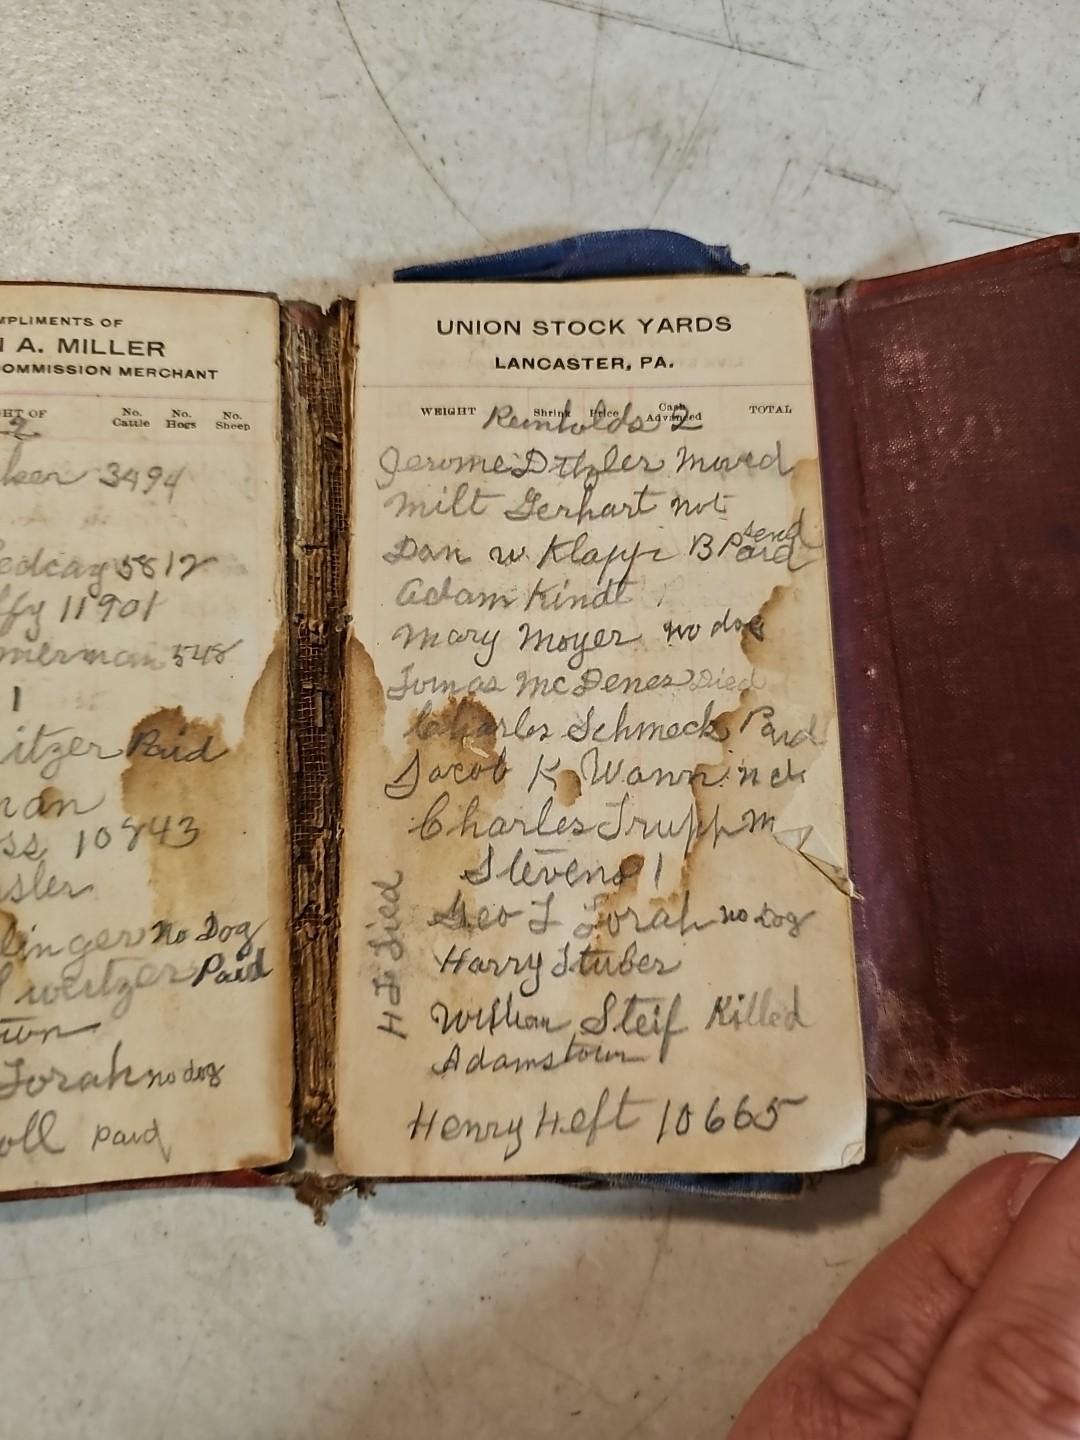 MPLIMENTS OF
A. MILLER
OMMISSION MERCHANT
HT OF No. Cattle No. Hogs No. Sheep
2
ker 3494
5812
ffy 11901
merman 548
1
itzer Paid
man
ss 10843
sler
linger no Dog
weitzer Paid
Zorah no dog
oll paid
UNION STOCK YARDS
LANCASTER, PA.
WEIGHT Shrink Price Cash Advanced TOTAL
Reinholds 2
Jerome Moved
Milt Gerhart not
Dan W. Klapp B Paid send
Adam Kindt
Mary Moyer no dog
Died
Charles Schmeck Paid
Jacob K Wann
Charles Trupp m
Stevens 1
Geo Z Zorah no Dog
Harry Stuber
H Z Died
William Steif Killed
Adamstown
Henry Heft 10665